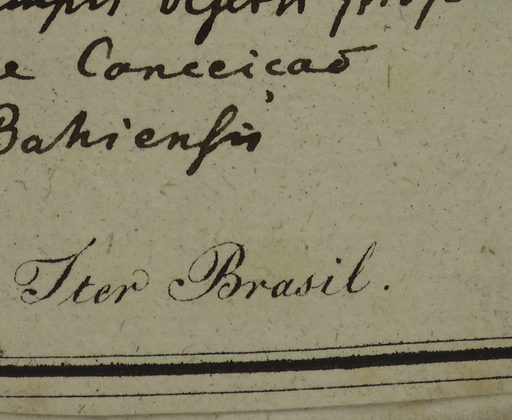 e Conceicaõ
Bahiensis
Iter Brasil.